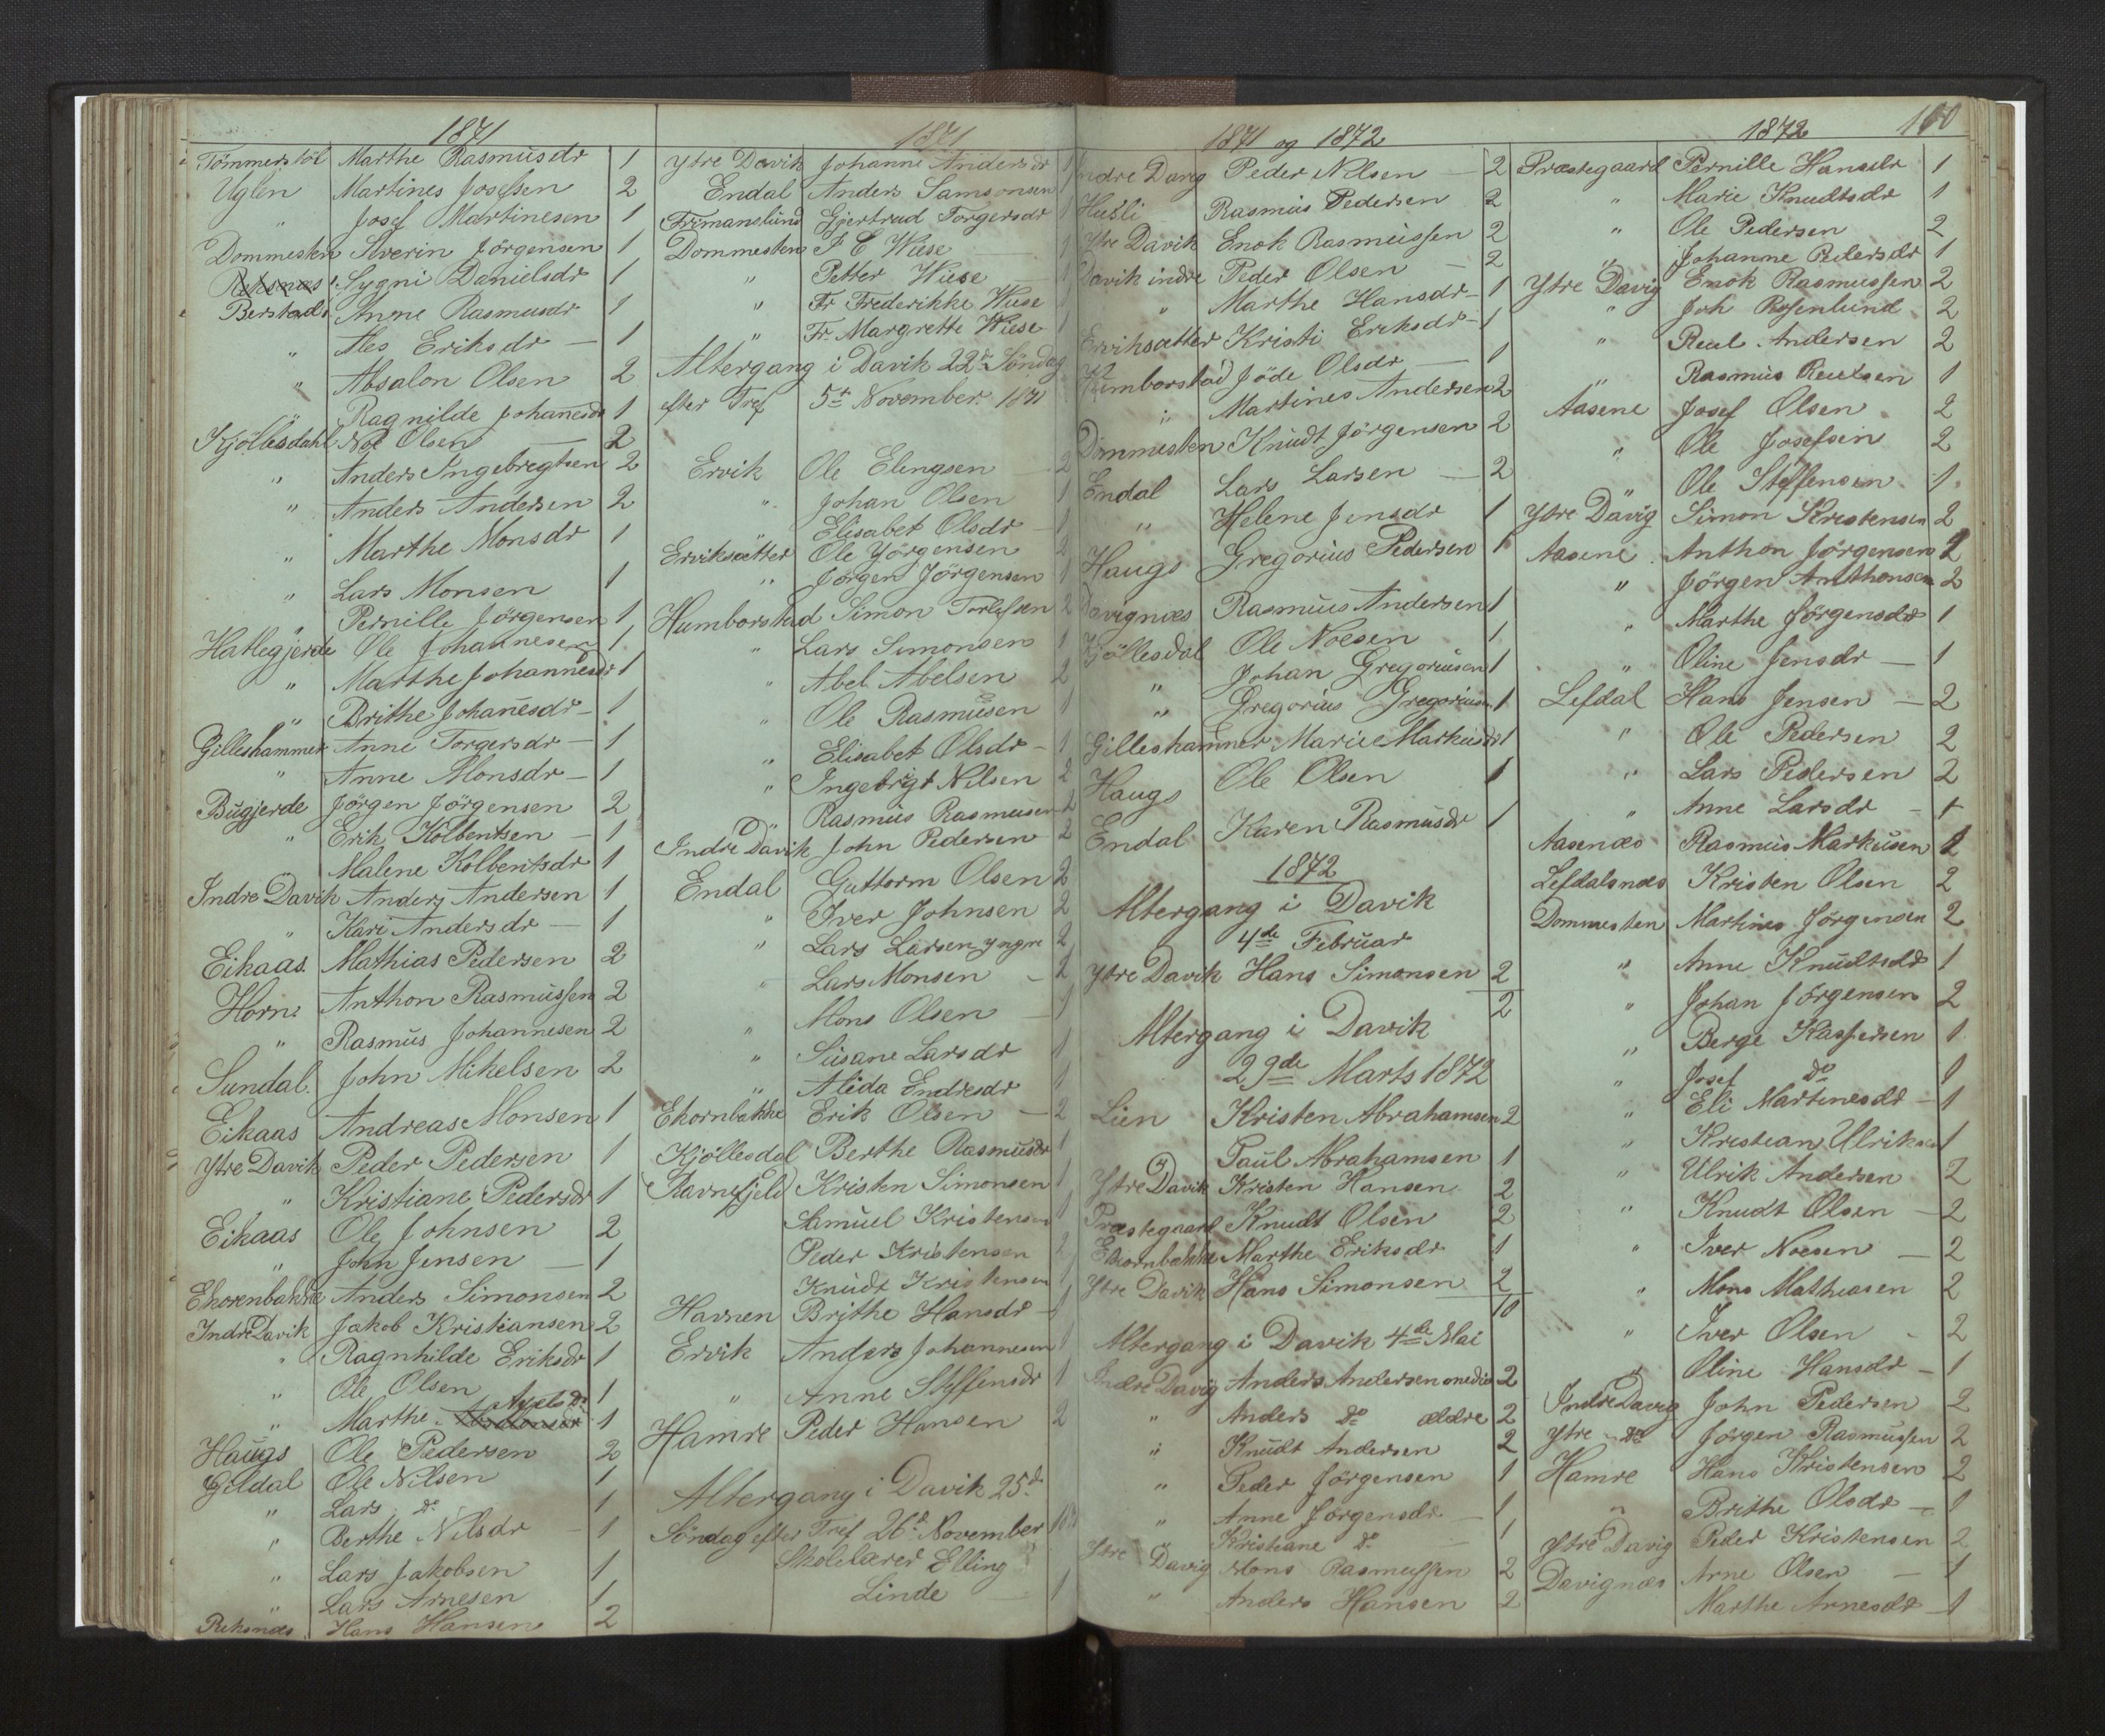 1871
Tömmerstöl Marthe Rasmusdr 1
Uglen Martines Josefsen 2
" Josef Martinesen 1
Dommesten Severin Jörgensen 1
Reksnæs Sygni Danielsdr 1
Berstad Anne Rasmusdr 1
" Ales Eriksdr 1
" Absalon Olsen 2
" Ragnilde Johanesdr 1
Kjöllesdahl Noe Olsen 2
" Anders Ingebregtsen 2
" Anders Andersen 2
" Marthe Monsdr 1
" Lars Monsen 1
" Pernille Jörgensen 1
Hatlegjerde Ole Johannesen 1
" Marthe Johannesdr 1
" Brithe Johanesdr 1
Gilleshammer Anne Torgersdr 1
" Anne Monsdr 1
Bugjerde Jörgen Jörgensen 2
" Erik Kolbentsen 1
Malene Kolbentsdr 1
Indre Davik Anders Andersen 1
" Kari Andersdr 1
Eikaas Mathias Pedersen 2
Horn Anthon Rasmussen 2
" Rasmus Johannesen 2
Sundal John Mikelsen 2
Eikaas Andreas Monsen 1
Ytre Davik Peder Pedersen 1
" Kristiane Pedersdr 1
Eikaas Ole Johnsen 2
" John Jensen 1
Ekorenbakke Anders Simonsen 2
Indre Davik Jakob Kristiansen 2
" Ragnhilde Eriksdr 1
" Ole Olsen 1
" Marthe Axelsdr 1
Haugs Ole Pedersen 2
Gildal Ole Nilsen 1
" Lars do 1
" Berthe Nilsdr 1
" Lars Jakobsen 1
" Lars Arnesen 1
Reksnæs Hans Hansen 2
1871
Ytre Davik Johanne Andersdr 1
Endal Anders Samsonsen 1
Frimanslund Gjertrud Torgersdr 1
Dommesten J C Wiese 1
" Petter Wiese 1
" Fr Frederikke Wiese 1
" Fr. Margrette Wiese 1
Altergang i Davik 22d Söndag
efter Tref 5te November 1871
Ervik Ole Elingsen 2
" Johan Olsen 1
" Elisabet Olsdr 1
Erviksætter Ole Yörgensen 2
" Jörgen Jörgensen 1
Humborstad Simon Torlefsen 2
" Lars Simonsen 1
" Abel Abelsen 2
" Ole Rasmussen 1
" Elisabet Olsdr 1
" Ingebrigt Nilsen 2
" Rasmus Rasmusen 2
Indre Davik John Pedersen 2
Endal Guttorm Olsen 2
" Iver Johnsen 2
" Lars Larsen yngre 2
" Lars Monsen 2
" Mons Olsen 1
" Susane Larsdr 1
" Alida Endresdr 1
Ekornbakke Erik Olsen 2
Kjöllesdal Berthe Rasmusdr 1
Ravnefjeld Kristen Simonsen 1
Samuel Kristensen 1
Peder Kristensen 2
Knudt Kristensen 1
Havnen Brithe Hansdr 1
Ervik Anders Johannesen 1
" Anne Steffensdr 1
Hamre Peder Hansen 2
Altergang i Davik 25d
Söndag efter Tref 26d November
Skolelærer Elling
Linde 1
1871 og 1872
Indre Davig Peder Nilsen 2
Husli Rasmus Pedersen 2
Ytre Davik Enok Rasmussen 2
Davik indre Peder Olsen 2
" Marthe Hansdr 1
Erviksætter Kristi Eriksdr 1
Humborstad Jöde Olsdr 1
" Martines Andersen 2
Dommesten Knudt Jörgensen 2
Endal Lars Larsen 2
" Helene Jensdr 1
Haugs Gregorius Pedersen 1
Davignæs Rasmus Andersen 1
Kjöllesdal Ole Noesen 1
" Johan Gregoriusen 1
" Gregorius Gregoriusen 1
Gilleshammer Marie Markusdr 1
Haugs Ole Olsen 1
Endal Karen Rasmusdr 1
1872
Altergang i Davik
4de Februar
Ytre Davik Hans Simonsen 2
2
Altergang i Davik
29de Marts 1872
Lien Kristen Abrahamsen 2
" Paul Abrahamsen 1
Ytre Davik Kristen Hansen 2
Præstegaard Knudt Olsen 2
Ekornbakke Marthe Eriksdr 1
Ytre Davik Hans Simonsen 2
10
Altergang i Davik 4de Mai
Indre Davig Anders Andersen 2
" Anders do ældre 2
" Knudt Andersen 2
" Peder Jörgensen 1
" Anne Jörgensdr 1
" Kristiane do 1
Ytre Davig Mons Rasmussen 2
" Anders Hansen 2
1872 100
Præstegaard Pernille Hansdr 1
" Marie Knudtsdr 1
" Ole Pedersen 2
" Johanne Pedersdr 1
Ytre Davig Enok Rasmussen 2
" Joh Rosenlund 2
" Reul Andersen 2
" Rasmus Reulsen 1
Aasene Josef Olsen 2
" Ole Josefsen 2
" Ole Steffensen 1
Ytre Davig Simon Kristensen 2
Aasene Anthon Jörgensen 2
" Jörgen Anthonsen 2
" Marthe Jörgensdr 1
" Oline Jensdr 1
Lefdal Hans Jensen 2
" Ole Pedersen 2
" Lars Pedersen 2
" Anne Larsdr 1
Aasenæs Rasmus Markusen 2
Lefdalsnæs Kristen Olsen 2
Dommesten Martines Jörgensen 2
" Anne Knudtsdr 1
" Johan Jörgensen 2
" Berge Kaspersen 1
" Josef do 1
" Eli Martinesdr 1
" Kristian Ulriksen 1
" Ulrik Andersen 2
" Knudt Olsen 2
" Iver Noesen 2
" Mons Mathiasen 2
" Iver Olsen 2
" Oline Hansdr 1
Indre Davig John Pedersen 2
Ytre do Jörgen Rasmussen 2
Hamre Hans Kristensen 2
" Brithe Olsdr 1
Ytre Davig Peder Kristensen 2
Davignæs Arne Olsen 1
Marthe Arnesdr 1